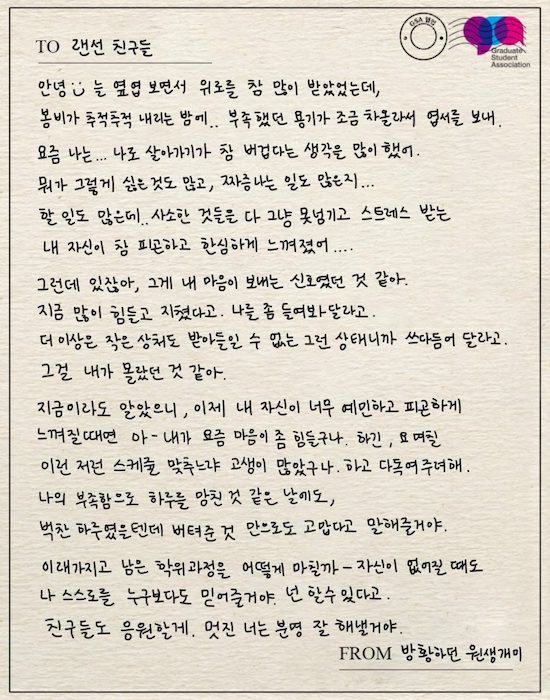 GSA 엽편
Graduate
Student
Association
TO 랜선 친구들
안녕 늘 옆엽 보면서 위로를 참 많이 받았었는데,
봄비가 추적추적 내리는 밤에.. 부족했던 용기가 조금 차올라서 엽서를 보내.
요즘 나는... 나로 살아가기가 참 버겁다는 생각을 많이 했어.
뭐가 그렇게 싫은것도 많고, 짜증나는 일도 많은지...
할 일도 많은데.. 사소한 것들을 다 그냥 못넘기고 스트레스 받는
내 자신이 참 피곤하고 한심하게 느껴졌어....
그런데 있잖아, 그게 내 마음이 보내는 신호였던 것 같아.
지금 많이 힘들고 지쳤다고. 나를 좀 들여봐달라고.
더 이상은 작은 상처도 받아들일 수 없는 그런 상태니까 쓰다듬어 달라고.
그걸 내가 몰랐던 것 같아.
지금이라도 알았으니, 이제 내 자신이 너무 예민하고 피곤하게
느껴질때면 아- 내가 요즘 마음이 좀 힘들구나. 하긴, 요 며칠
이런 저런 스케쥴 맞추느라 고생이 많았구나. 하고 다독여주려해.
나의 부족함으로 하루를 망친 것 같은 날에도,
벅찬 하루였을텐데 버텨준 것 만으로도 고맙다고 말해줄거야.
이래가지고 남은 학위과정을 어떻게 마칠까 - 자신이 없어질 때도
나 스스로를 누구보다도 믿어줄거야. 넌 할수있다고.
친구들도 응원할게. 멋진 너는 분명 잘 해낼거야.
FROM 방황하던 원생개미